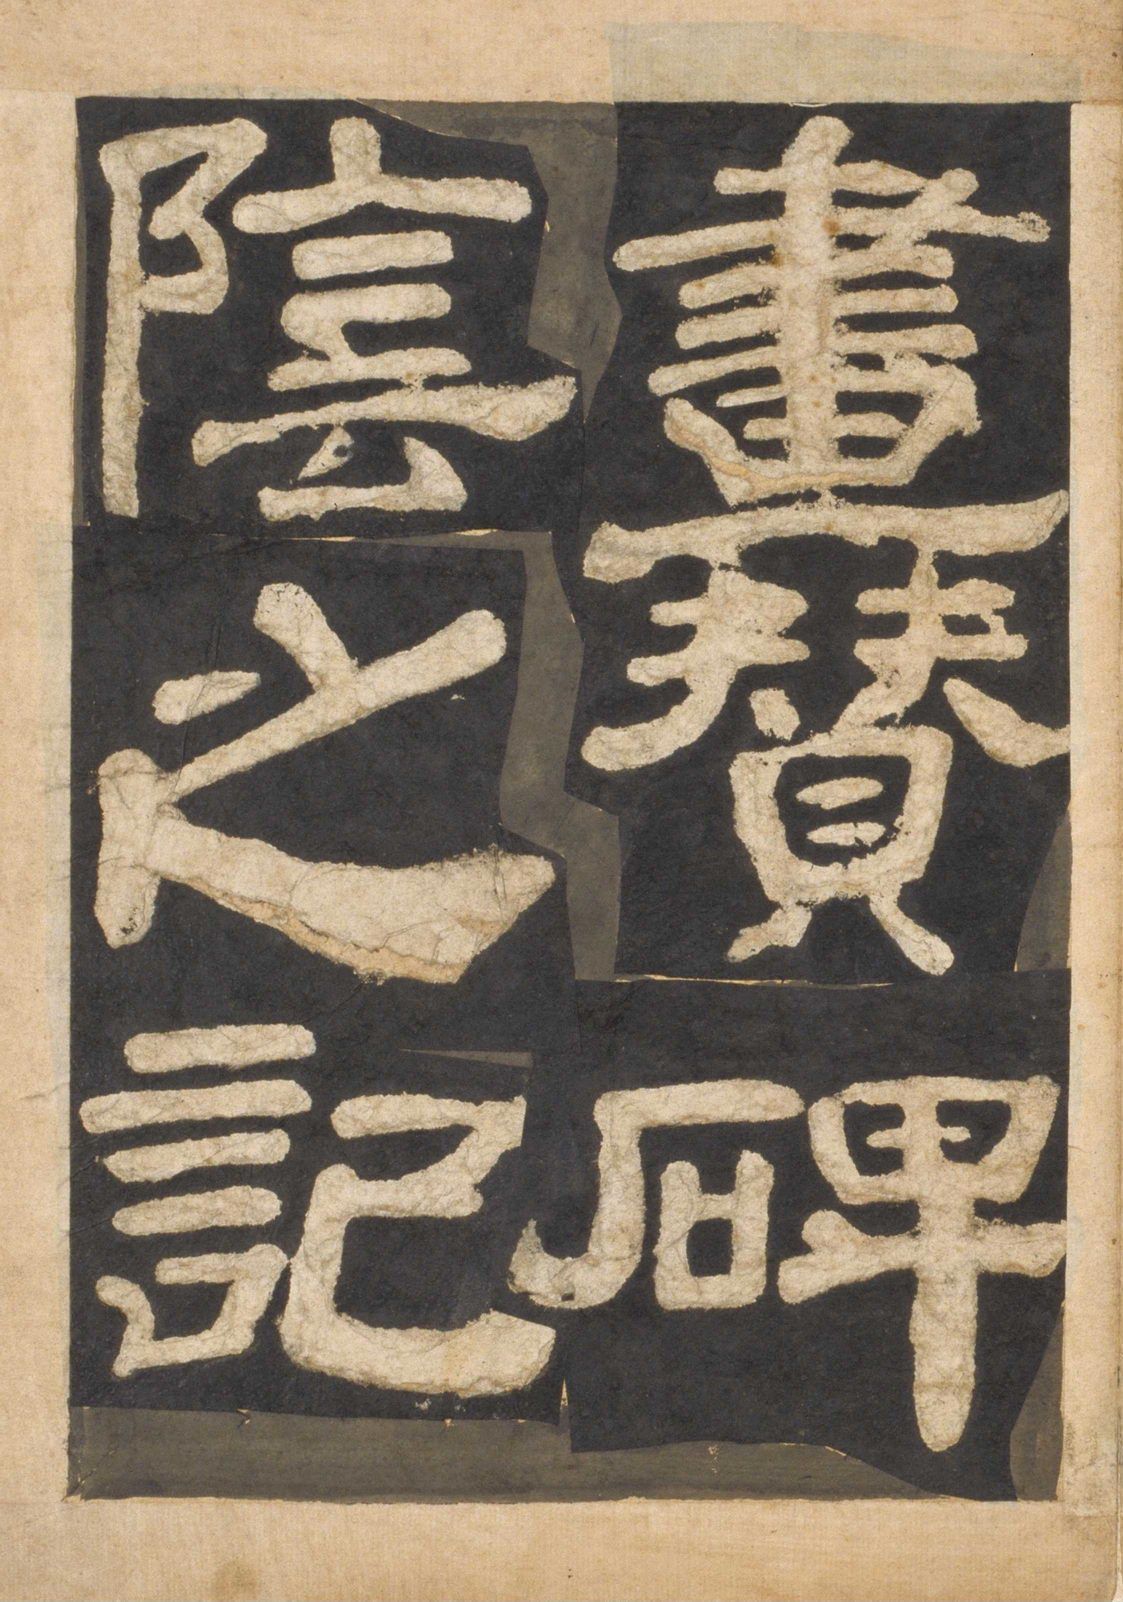 畫贊碑
陰之記